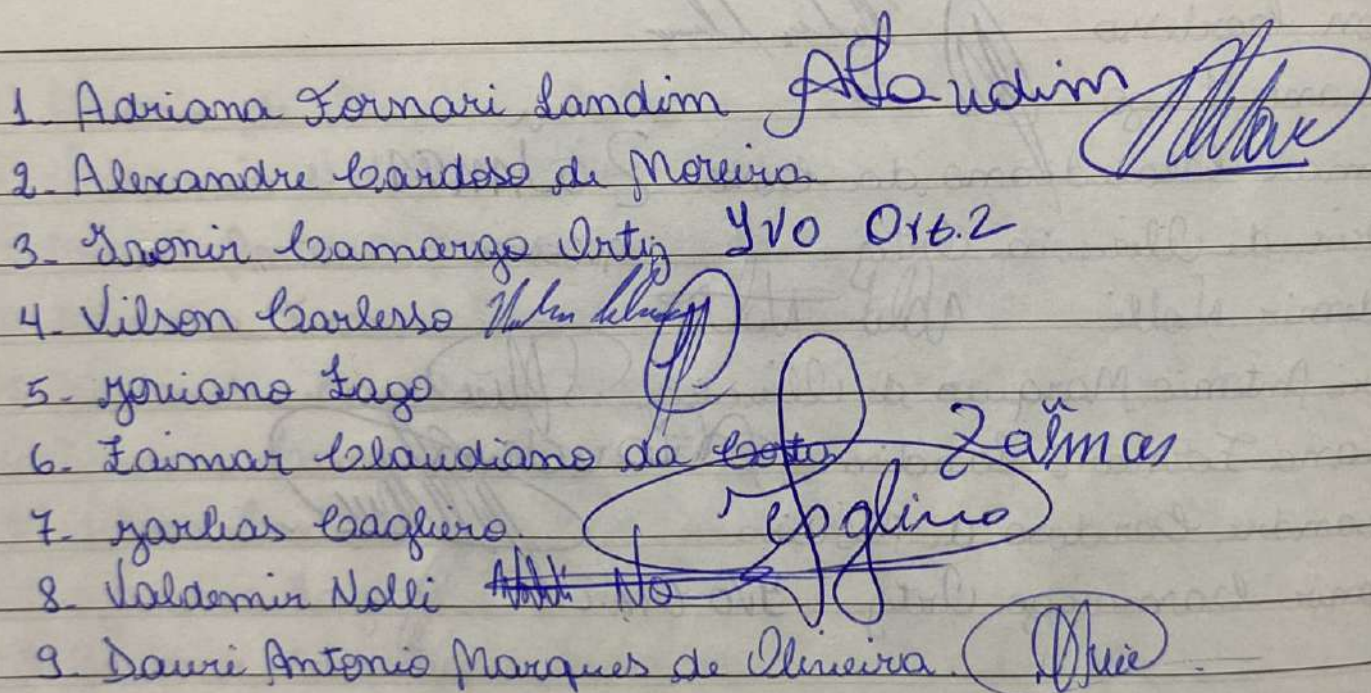 1. Adriana Fornari Landim ALandim
2. Alexandre Cardoso de Moreira
3. Camargo Ortiz IVO Ortiz
4. Vilson Carlesso
5. Joviano Zago
6. Zaimar Claudiano da Costa Zalmar
7. Jarbas Cagliero.
8. Valdemir Nolli
9. Dauri Antonio Marques de Oliveira.